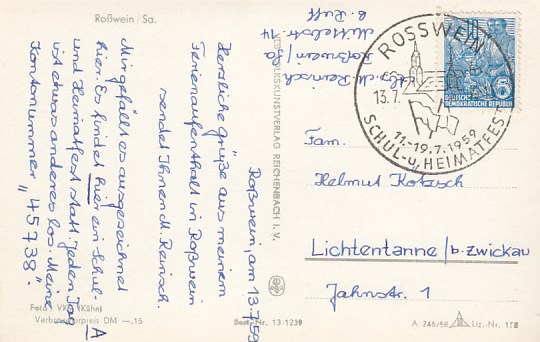 Roßwein / Sa.
Roßwein, am 13.7.59
Herzliche Grüße aus meinem
Ferienaufenthalt in Roßwein
sendet Ihnen M. Reinsch.
Mir gefällt es ausgezeichnet
hier. Es findet hier ein Schul-
und Heimatfest statt. Jeden Tag
ist etwas anderes los. Meine
Kontonummer "45738".
A
M. Reinsch
Roßwein / Sa
Mittelstr. 14
b. Ruff
VEB VOLKSKUNSTVERLAG REICHENBACH I. V.
Foto: VKV (Kähn)
Verbraucherpreis DM —,15
Best.-Nr. 13 1239
ROSSWEIN
13.7.
11.-19.7.1959
SCHUL- u. HEIMATFEST
10
DEUTSCHE
DEMOKRATISCHE REPUBLIK
5
Fam.
Helmut Kotzsch
Lichtentanne / b. Zwickau
Jahnstr. 1
A 246/58 Liz.-Nr. 178